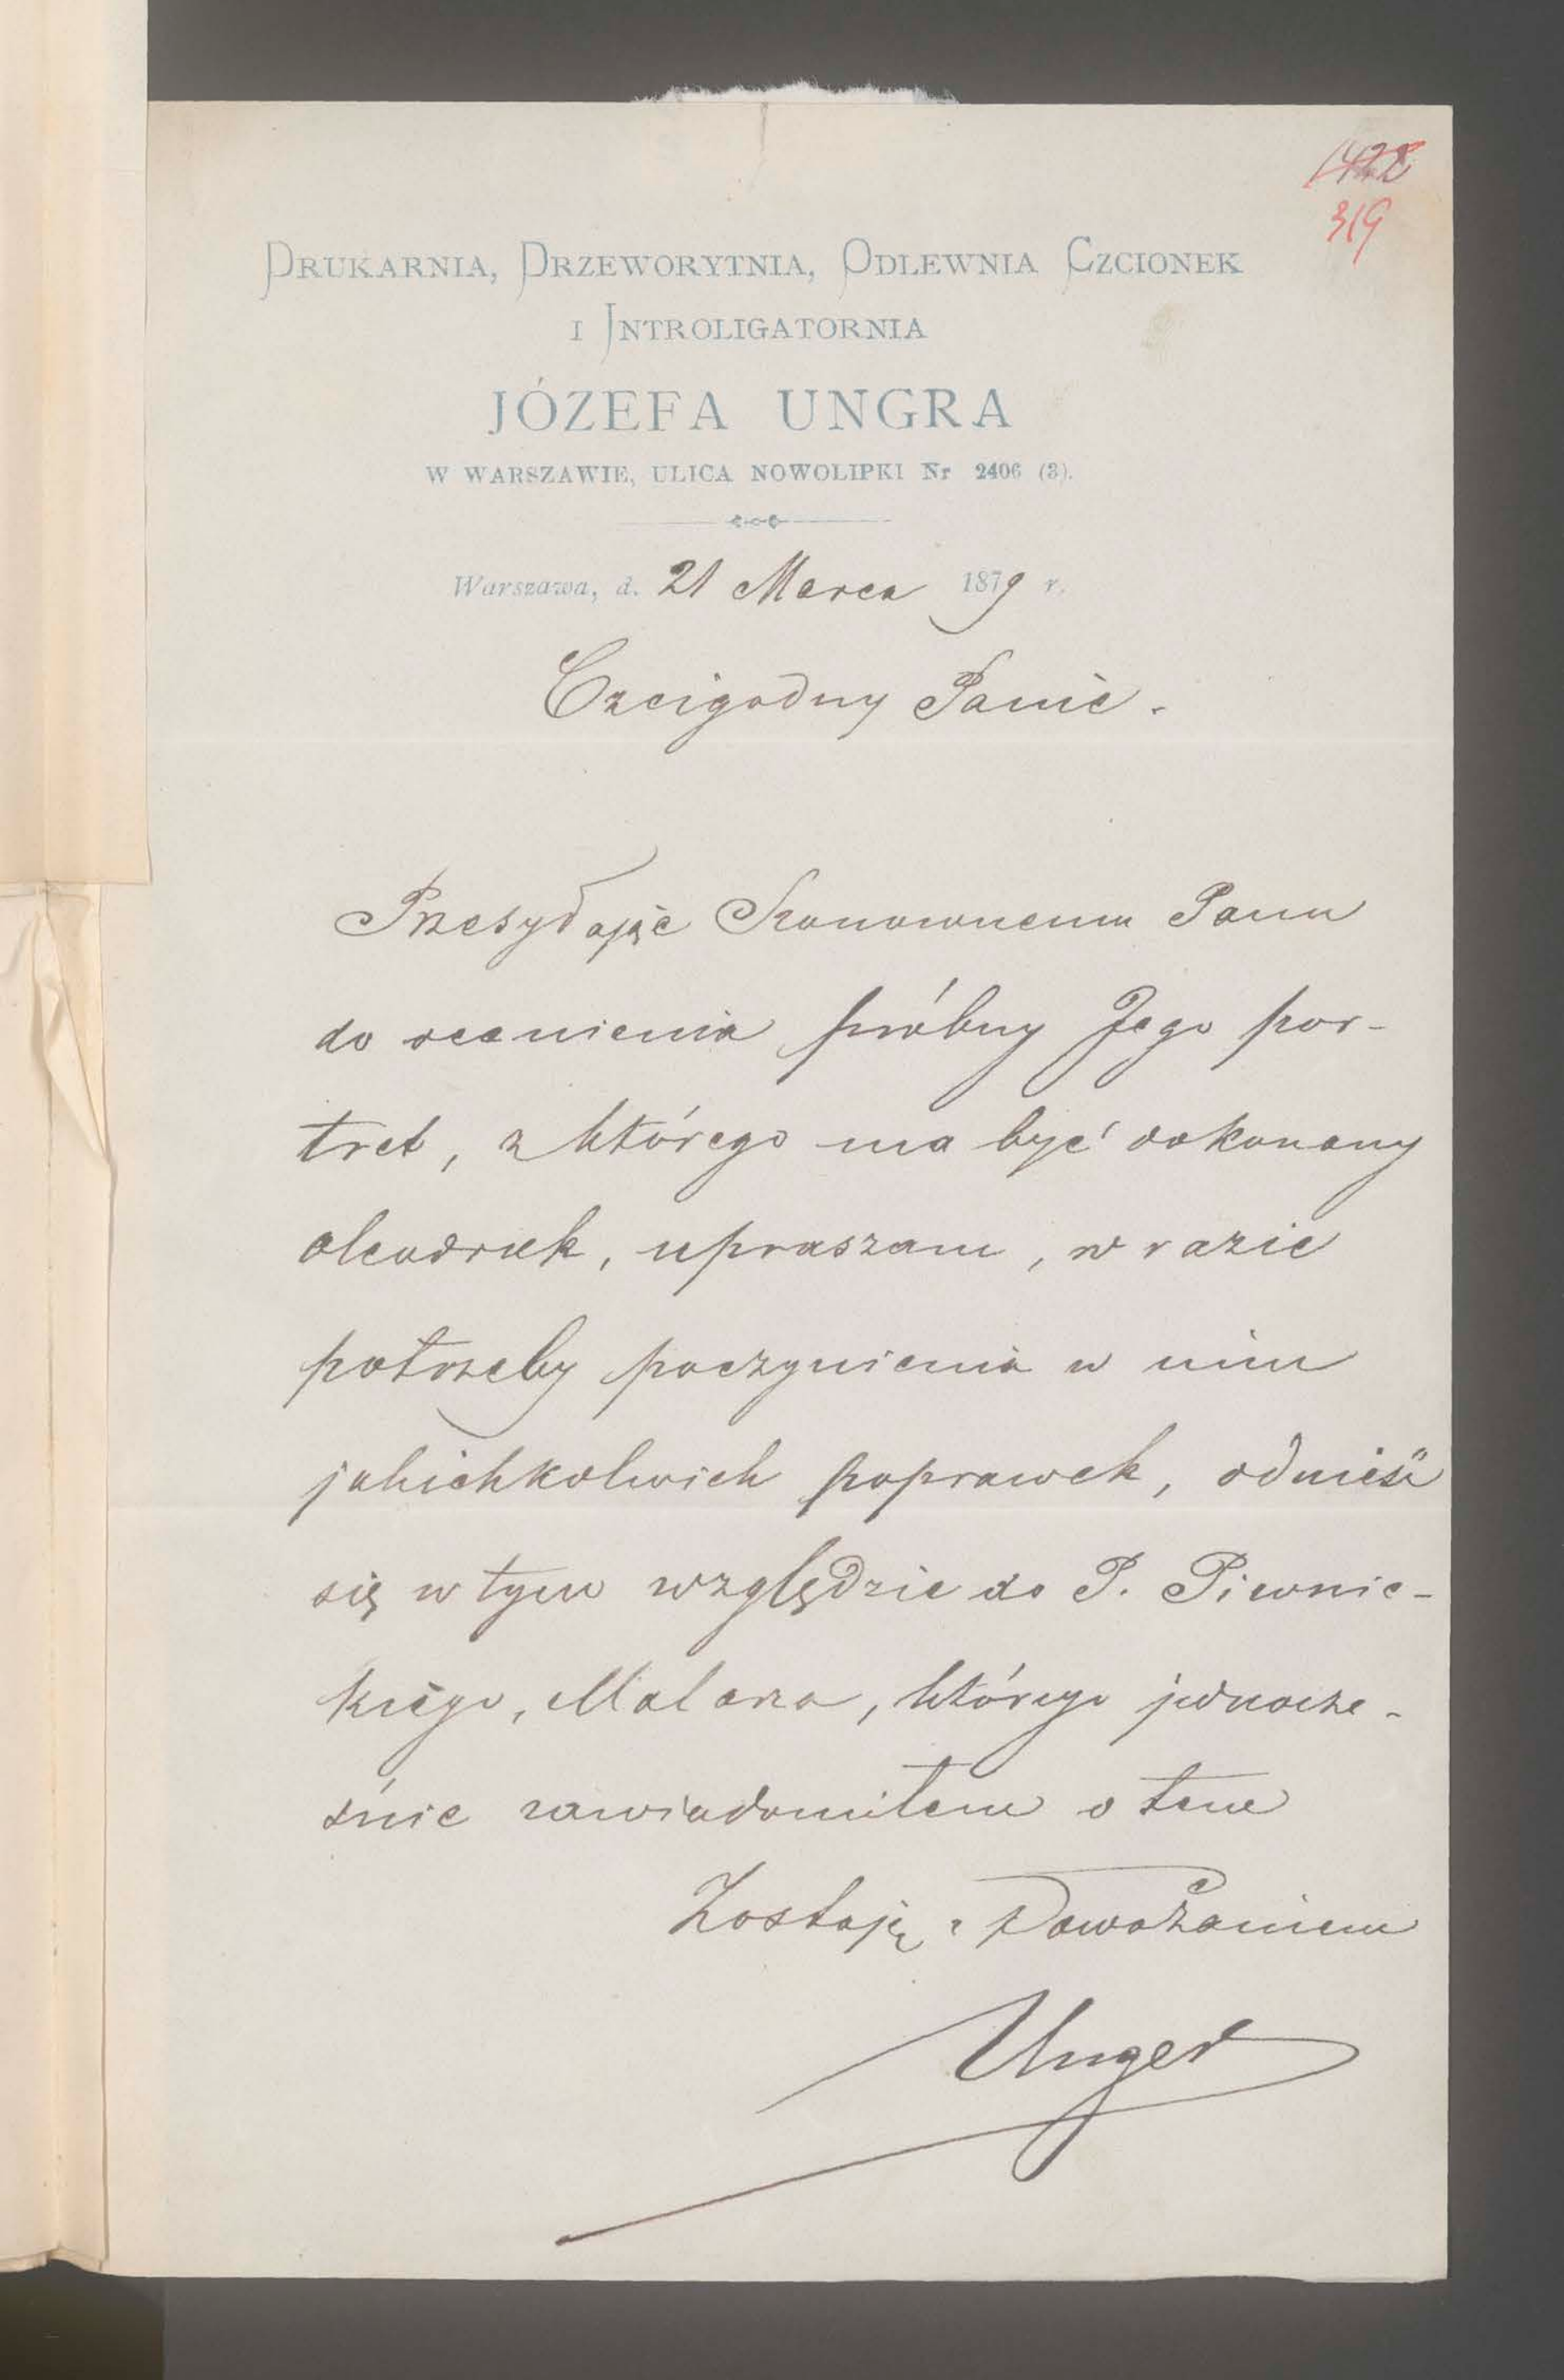 1428
319
DRUKARNIA, DRZEWORYTNIA, ODLEWNIA CZCIONEK
I INTROLIGATORNIA
JÓZEFA UNGRA
W WARSZAWIE, ULICA NOWOLIPKI Nr 2406 (3).
Warszawa, d. 21 Marca 1879 r.
Czcigodny Panie.
Przesyłając Szanownemu Panu
do ocenienia próbny Jego por-
tret, z którego ma być dokonany
oleodruk, upraszam, w razie
potrzeby poczynienia w nim
jakichkolwiek poprawek, odnieść
się w tym względzie do P. Piwnic-
kiego, Malarza, którego jednocze-
śnie zawiadomiłem o tem
Zostaję z Poważaniem
Unger